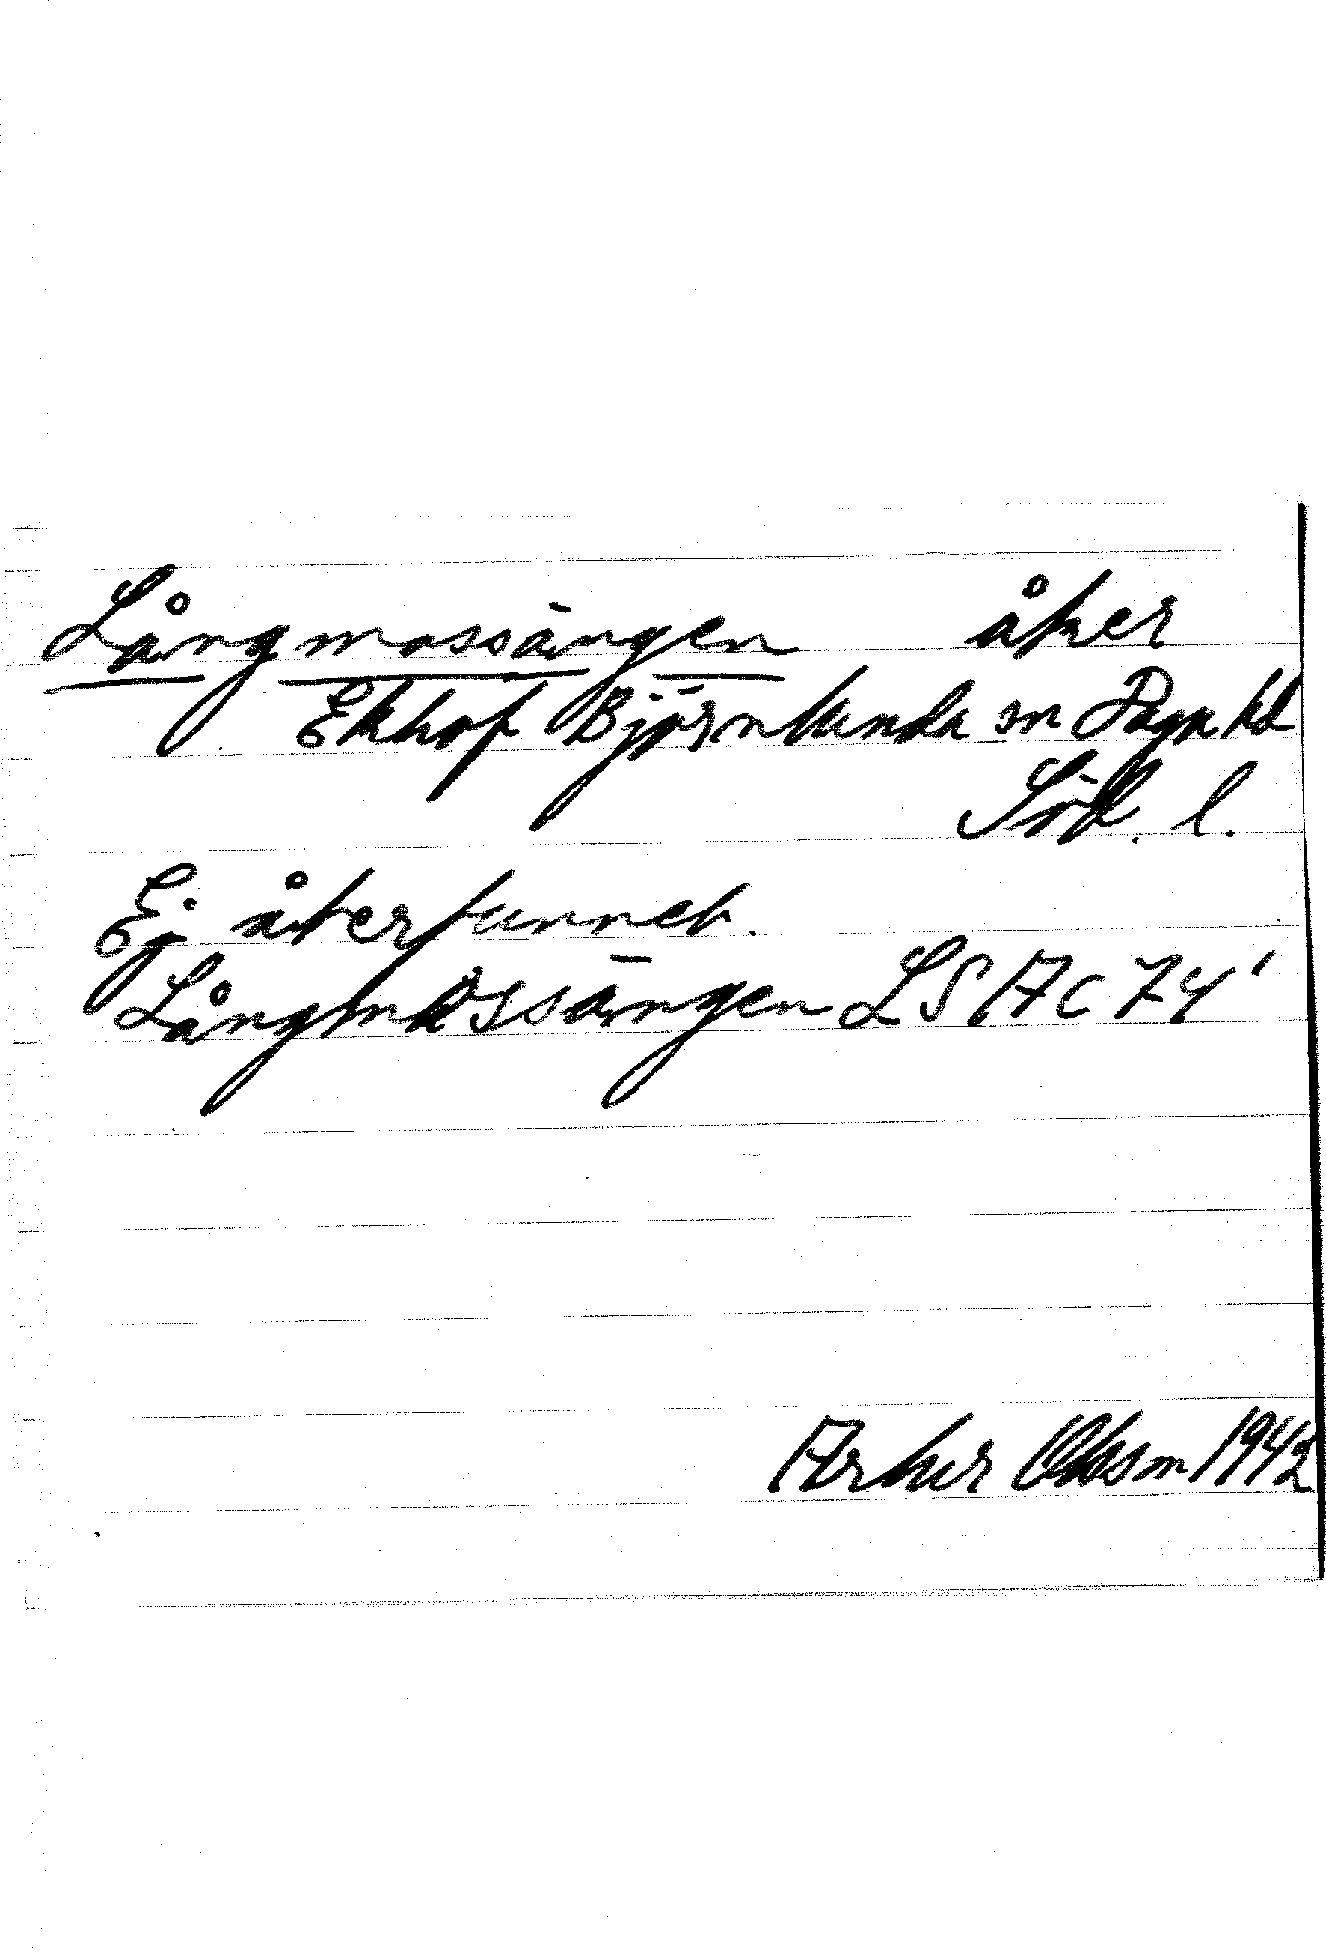 Långmossängen åker
Ekhof Björnlunda sn Daga hd
Söd. l.
Ej återfunnet.
Långmossängen LSA C 74'
Artur 1942